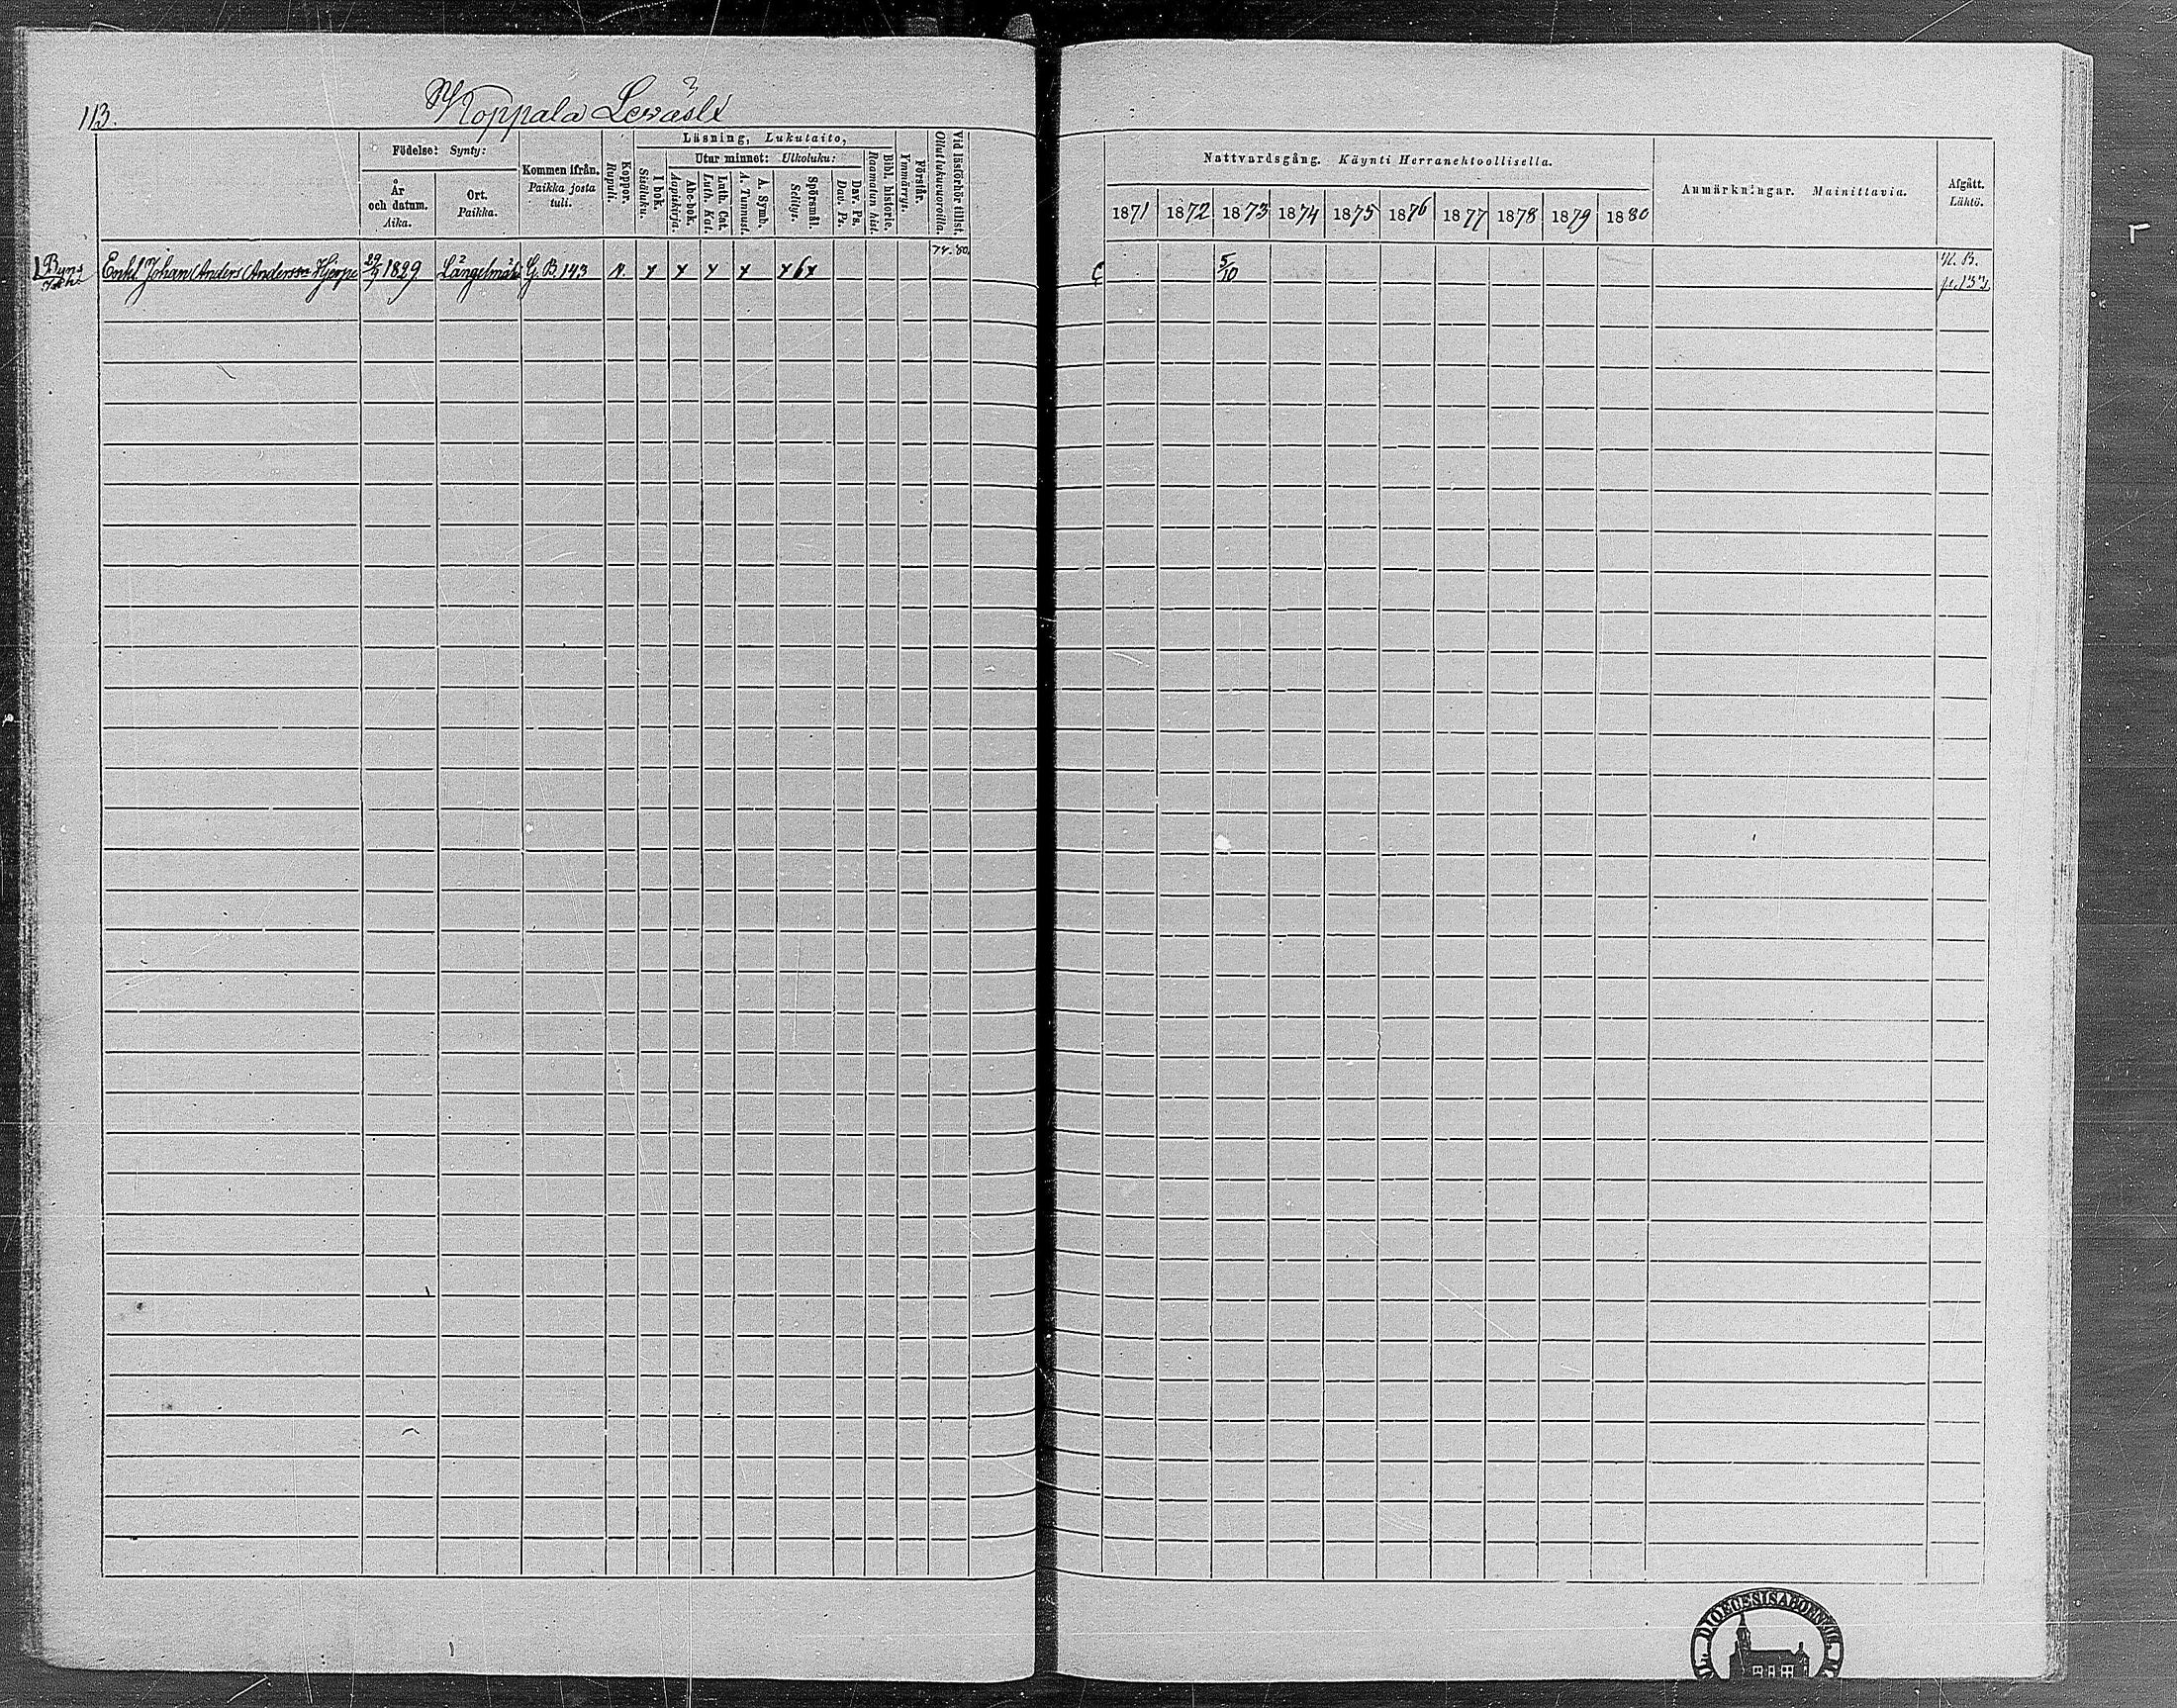 113.
Koppala Leväslt
Födelse: Synty:
År och datum. Aika.
Ort. Paikka.
Kommen ifrån. Paikka josta tuli.
Koppor. Rupuli.
Läsning, Lukutaito,
I bok. Sisäluku.
Utur minnet: Ulkoluku:
Abc-bok. Aapiskirja.
Luth. Cat. Luth. Kat.
A. Symb. A. Tunnust.
Spörsmål. Selitys.
Dav. Ps. Dav. Ps.
Bibl. historie. Raamatun hist.
Förstår. Ymmärrys.
Vid läsförhör tillst. Ollut lukuvuoroilla.
Enkl Johan Anders Andersson Hjerpe 29/9 1829 Längelmäki G. B. 143 N. x x x x x 6 x 74. 80.
Nattvardsgång. Käynti Herranehtoollisella.
1871 1872 1873 1874 1875 1876 1877 1878 1879 1880
Anmärkningar. Mainittavia.
Afgått. Lähtö.
C 5/10
N. B.
DIOECESIS ABOENSIS